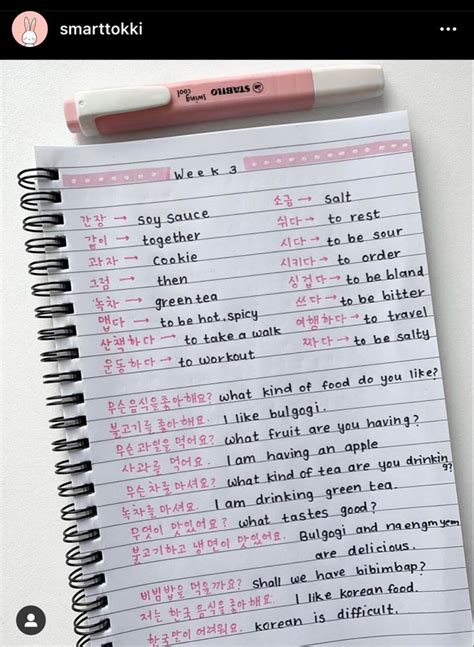 smarttokki
STABILO
swing cool
Week 3
간장 → soy sauce
같이 → together
과자 → cookie
그럼 → then
녹차 → green tea
맵다 → to be hot, spicy
산책하다 → to take a walk
운동하다 → to workout
소금 → salt
쉬다 → to rest
시다 → to be sour
시키다 → to order
싱겁다 → to be bland
쓰다 → to be bitter
여행하다 → to travel
짜다 → to be salty
무슨 음식을 좋아해요? what kind of food do you like?
불고기를 좋아해요. I like bulgogi.
무슨 과일을 먹어요? what fruit are you having?
사과를 먹어요. I am having an apple
무슨 차를 마셔요? what kind of tea are you drinkin
g?
녹차를 마셔요. I am drinking green tea.
무엇이 맛있어요? what tastes good?
불고기하고 냉면이 맛있어요. Bulgogi and naengmyeon
are delicious.
비빔밥을 먹을까요? Shall we have bibimbap?
저는 한국 음식을 좋아해요. I like korean food.
한국말이 어려워요. korean is difficult.